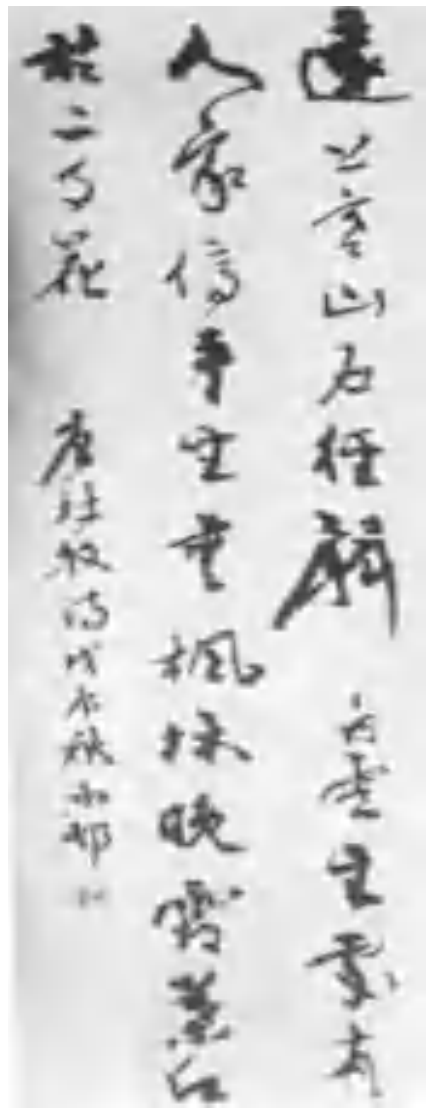 遠上寒山石徑斜白雲生處有
人家停車坐愛楓林晚霜葉紅
於二月花
唐杜牧詩戊秋邨